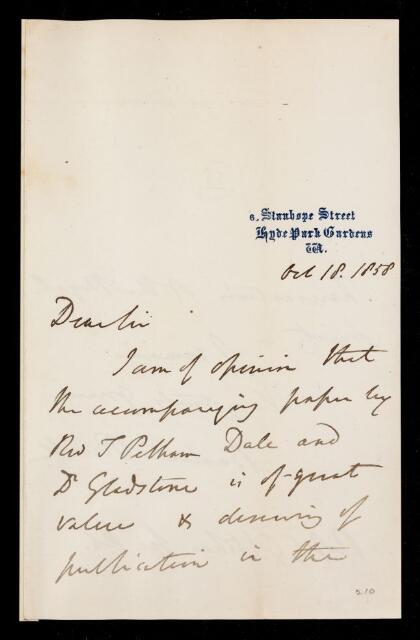 6, Stanhope Street
Hyde Park Gardens
W.
Oct 18. 1858
Dear Sir
I am of opinion that
the accompanying paper by
Rev T Pelham Dale and
Dr Gladstone is of great
value & deserving of
publication in the
210